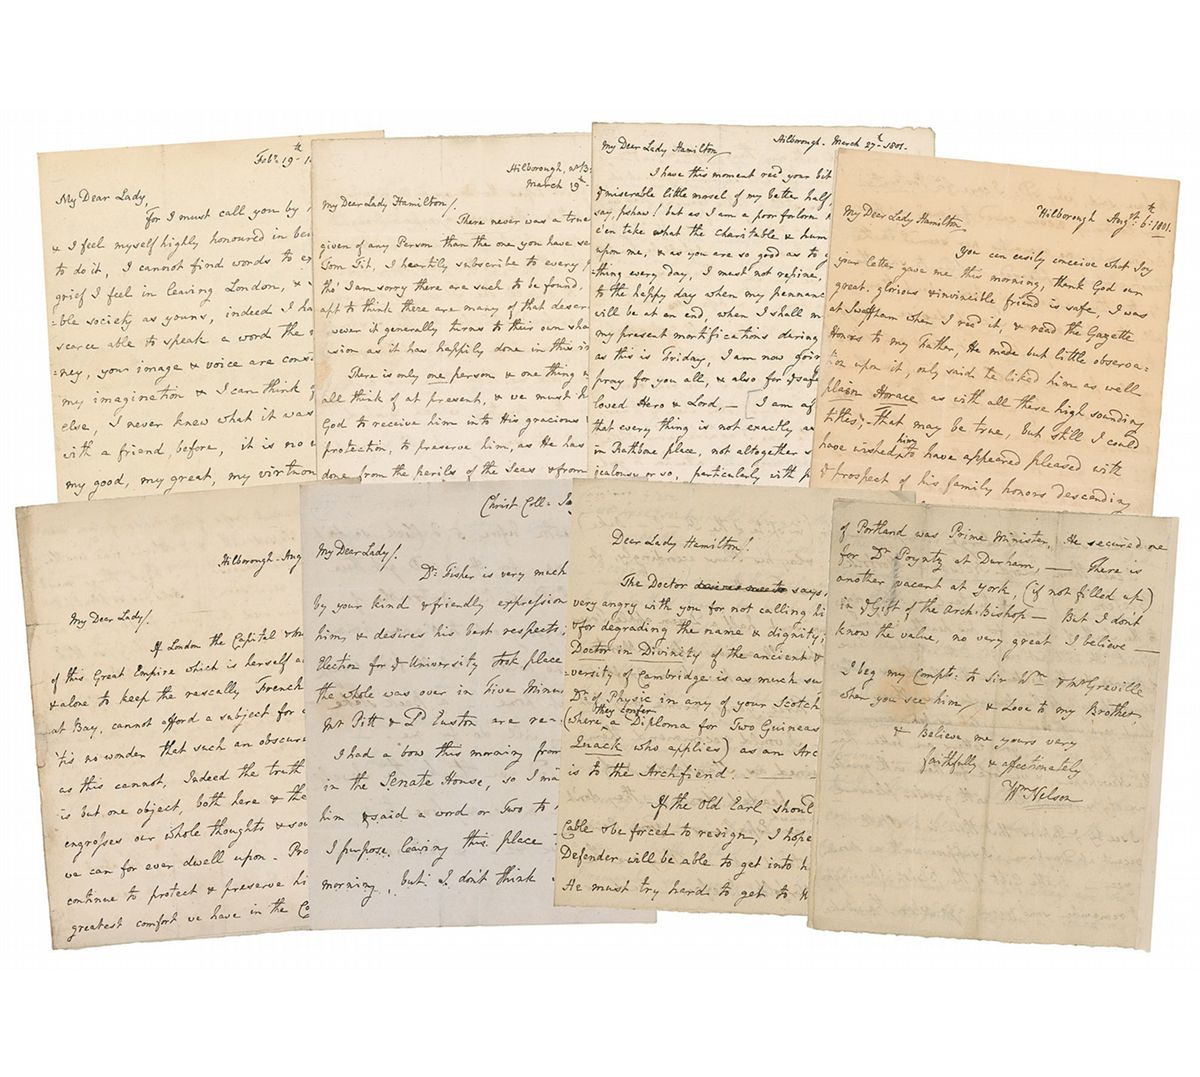 Feby. 19th 1
My Dear Lady,
For I must call you by
& I feel myself highly honoured in be
to do it, I cannot find words to ex
grief I feel in leaving London, &
=ble society as yours, indeed I ha
scarce able to speak a word the
=ney, your image & voice are cons
my imagination & I can think
else, I never knew what it was
with a friend, before, it is no
my good, my great, my virtuou
Hilborough, nr B
March 19th
My Dear Lady Hamilton/.
There never was a true
given of any Person than the one you have se
Tom Tit, I heartily subscribe to every
tho' I am sorry there are such to be found,
apt to think there are many of that descr
=wever it generally turns to this own sha
=sion as it has happily done in this i
There is only one person & one thing
all think of at present, & we must h
God to receive him into His gracious
protection, to preserve him, as He has
done from the perils of the Seas & from
Hilborough. March 27th 1801.
My Dear Lady Hamilton
I have this moment recd your bit
& miserable little morsel of my better half,
say, pshaw! but as I am a poor forlorn
e'en take what the charitable & hum
upon me, & as you are so good as to
thing every day, I must not repine,
to the happy day when my pennanc
will be at an end, when I shall m
my present mortifications during
as this is Friday, I am now goin
pray for you all, & also for ye safe
loved Hero & Lord, — [I am af
that every thing is not exactly as
in Rathbone place, not altogether s
jealousy or so, particularly with p
Hilborough Augst. 6th: 1801.
My Dear Lady Hamilton,
You can easily conceive what Joy
your letter gave me this morning, thank God our
great, glorious & invincible friend is safe, I was
at Swaffham when I recd it, & read the Gazette
Honors to my Father, He made but little observa=
tion upon it, only said he liked him as well
plain Horace as with all these high sounding
titles, — That may be true, but still I could
have wished him to have appeared pleased with
ye prospect of his family honors descending
Hilborough. Aug
My Dear Lady/.
If London the Capital &
of this Great Empire which is herself a
& alone to keep the rascally French
at Bay, cannot afford a subject for a
'tis no wonder that such an obscure
as this cannot, Indeed the truth
is but one object, both here & the
engrosses our whole thoughts & sou
we can for ever dwell upon - Pro
continue to protect & preserve hi
greatest comfort we have in the Co
Christ Coll:
My Dear Lady/.
Dr. Fisher is very much
by your kind & friendly expression
him, & desires his best respects,
Election for ye University took place
the whole was over in Five Minu
Mr Pitt & Ld Euston are re=
I had a bow this morning from
in the Senate House, so I ma
him & said a word or Two to
I purpose leaving this place
morning, but I don't think
Dear Lady Hamilton/.
The Doctor desires me to says,
very angry with you for not calling hi
& for degrading the name & dignity;
Doctor in Divinity of the ancient &
=versity of Cambridge is as much su
Dr. of Physic in any of your Scotch
(where they confer a Diploma for Two Guineas
Quack who applies) as an Arc
is to the Archfiend.
If the Old Earl shoul
Cable & be forced to resign, I hope
Defender will be able to get into h
He must try hard to get to
of Portland was Prime Minister, He secured me
for Dr Poynty at Durham, — There is
another vacant at York, (if not filled up)
in ye Gift of the Arch-Bishop — But I don't
know the value, no very great I believe —
I beg my Compts: to Sir Wm & Mr Greville
when you see him, & Love to my Brother,
& Believe me yours very
faithfully & affectionately
Wm Nelson